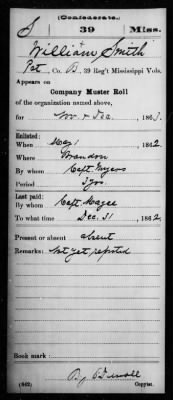 (Confederate.)
S 39 Miss.
William Smith
Pvt, Co. B, 39 Reg't Mississippi Vols.
Appears on
Company Muster Roll
of the organization named above,
for Nov & Dec, 1863.
Enlisted:
When May 1, 1862
Where Brandon
By whom Capt. Myers
Period 3 yrs.
Last paid:
By whom Capt. Magee
To what time Dec. 31, 1862
Present or absent absent
Remarks: not yet reported
Book mark:
(642) Copyist.